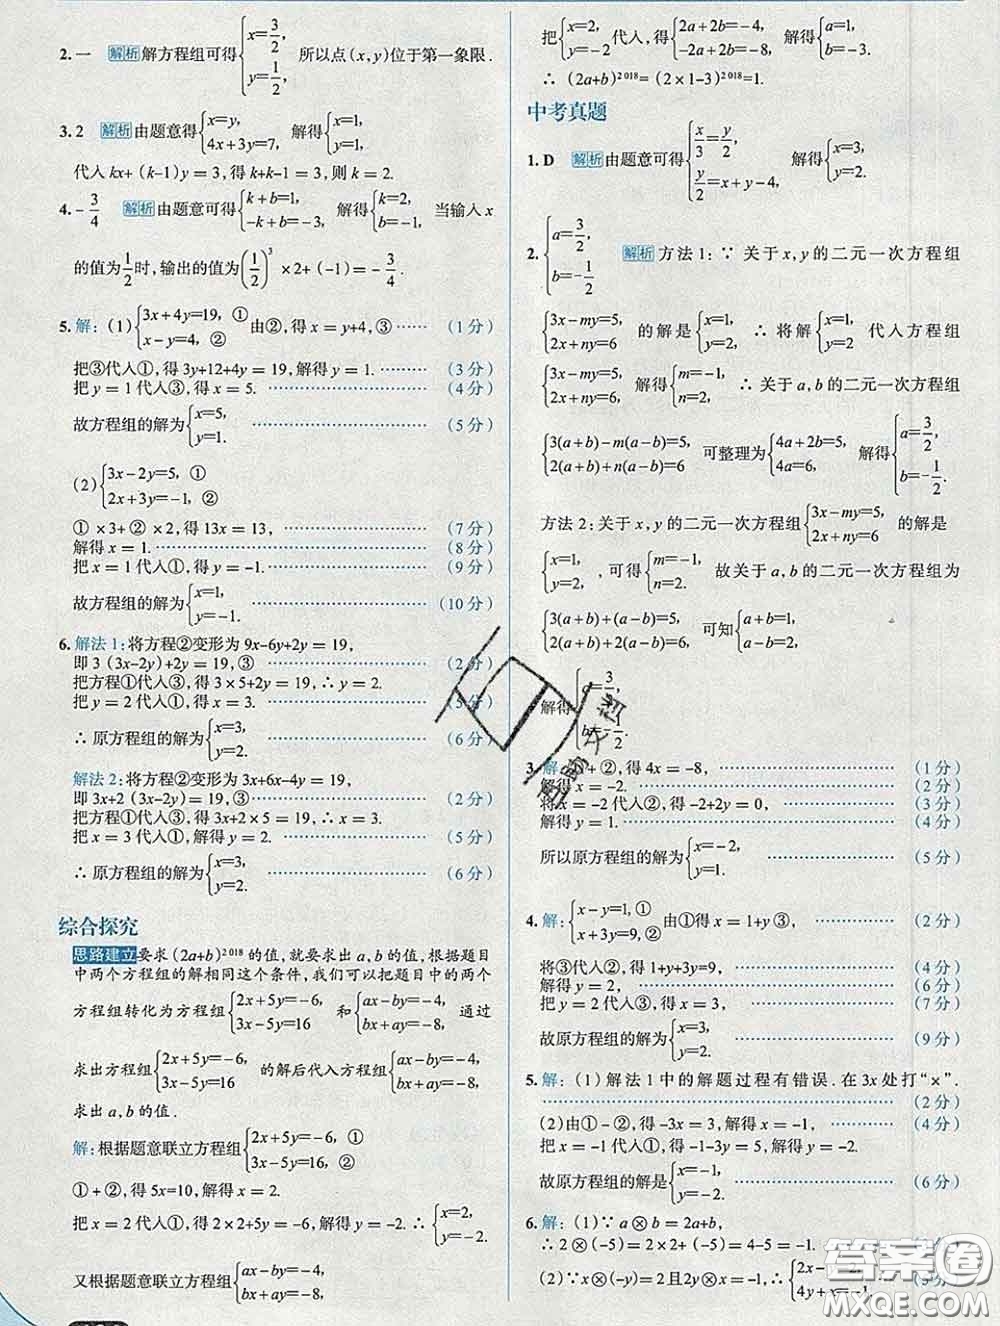 2. 一 解析 解方程组可得{x=3/2, y=1/2 所以点(x,y)位于第一象限.
3. 2 解析 由题意得{x=y, 4x+3y=7, 解得{x=1, y=1.
代入kx+(k-1)y=3,得k+k-1=3,则k=2.
4. -3/4 解析 由题意可得{k+b=1, -k+b=-3, 解得{k=2, b=-1. 当输入x
的值为1/2时,输出的值为(1/2)³×2+(-1)=-3/4.
5. 解:(1){3x+4y=19, ① x-y=4, ② 由②,得x=y+4,③ …… (1分)
把③代入①,得3y+12+4y=19,解得y=1. …… (3分)
把y=1代入③,得x=5. …… (4分)
故方程组的解为{x=5, y=1. …… (5分)
(2){3x-2y=5, ① 2x+3y=-1, ②
①×3+②×2,得13x=13, …… (7分)
解得x=1. …… (8分)
把x=1代入①,得y=-1. …… (9分)
故方程组的解为{x=1, y=-1. …… (10分)
6. 解法1:将方程②变形为9x-6y+2y=19,
即3(3x-2y)+2y=19,③ …… (2分)
把方程①代入③,得3×5+2y=19,∴y=2.
把y=2代入①,得x=3. …… (5分)
∴原方程组的解为{x=3, y=2. …… (6分)
解法2:将方程②变形为3x+6x-4y=19,
即3x+2(3x-2y)=19,③ …… (2分)
把方程①代入③,得3x+2×5=19,∴x=3.
把x=3代入①,解得y=2. …… (5分)
∴原方程组的解为{x=3, y=2. …… (6分)
综合探究
思路建立 要求(2a+b)²⁰¹⁸的值,就要求出a,b的值,根据题目
中两个方程组的解相同这个条件,我们可以把题目中的两个
方程组转化为方程组{2x+5y=-6, 3x-5y=16 和{ax-by=-4, bx+ay=-8, 通过
求出方程组{2x+5y=-6, 3x-5y=16 的解后代入方程组{ax-by=-4, bx+ay=-8,
求出a,b的值.
解:根据题意联立方程组{2x+5y=-6, ① 3x-5y=16, ②
①+②,得5x=10,解得x=2.
把x=2代入①,得2×2+5y=-6,解得y=-2. ∴{x=2, y=-2.
又根据题意联立方程组{ax-by=-4, bx+ay=-8,
把{x=2, y=-2代入,得{2a+2b=-4, -2a+2b=-8, 解得{a=1, b=-3.
∴(2a+b)²⁰¹⁸=(2×1-3)²⁰¹⁸=1.
中考真题
1. D 解析 由题意可得{x/3=y/2, y/2=x+y-4, 解得{x=3, y=2.
2. {a=3/2, b=-1/2 解析 方法1:∵关于x,y的二元一次方程组
{3x-my=5, 2x+ny=6 的解是{x=1, y=2, ∴将解{x=1, y=2 代入方程组
{3x-my=5, 2x+ny=6, 解得{m=-1, n=2, ∴关于a,b的二元一次方程组
{3(a+b)-m(a-b)=5, 2(a+b)+n(a-b)=6 可整理为{4a+2b=5, 4a=6, 解得{a=3/2, b=-1/2.
方法2:关于x,y的二元一次方程组{3x-my=5, 2x+ny=6 的解是
{x=1, y=2, 可得{m=-1, n=2, 故关于a,b的二元一次方程组为
{3(a+b)+(a-b)=5, 2(a+b)+2(a-b)=6, 可知{a+b=1, a-b=2,
解得{a=3/2, b=-1/2.
3. 解:①+②,得4x=-8, …… (1分)
解得x=-2. …… (2分)
将x=-2代入②,得-2+2y=0, …… (3分)
解得y=1. …… (4分)
所以原方程组的解为{x=-2, y=1. …… (5分)
4. 解:{x-y=1,① x+3y=9,② 由①得x=1+y③, …… (2分)
将③代入②,得1+y+3y=9, …… (4分)
解得y=2, …… (6分)
把y=2代入③,得x=3, …… (7分)
故原方程组的解为{x=3, y=2. …… (9分)
5. 解:(1)解法1中的解题过程有错误.在3x处打“×”.
…… (2分)
(2)由①-②,得-3x=3,解得x=-1, …… (4分)
把x=-1代入①,得-1-3y=5,解得y=-2.
故原方程组的解是{x=-1, y=-2. …… (6分)
6. 解:(1)∵a⊗b=2a+b,
∴2⊗(-5)=2×2+(-5)=4-5=-1.
(2)∵x⊗(-y)=2且2y⊗x=-1, ∴{2x-y=2, 4y+x=-1,
答案圈
MXQE.COM